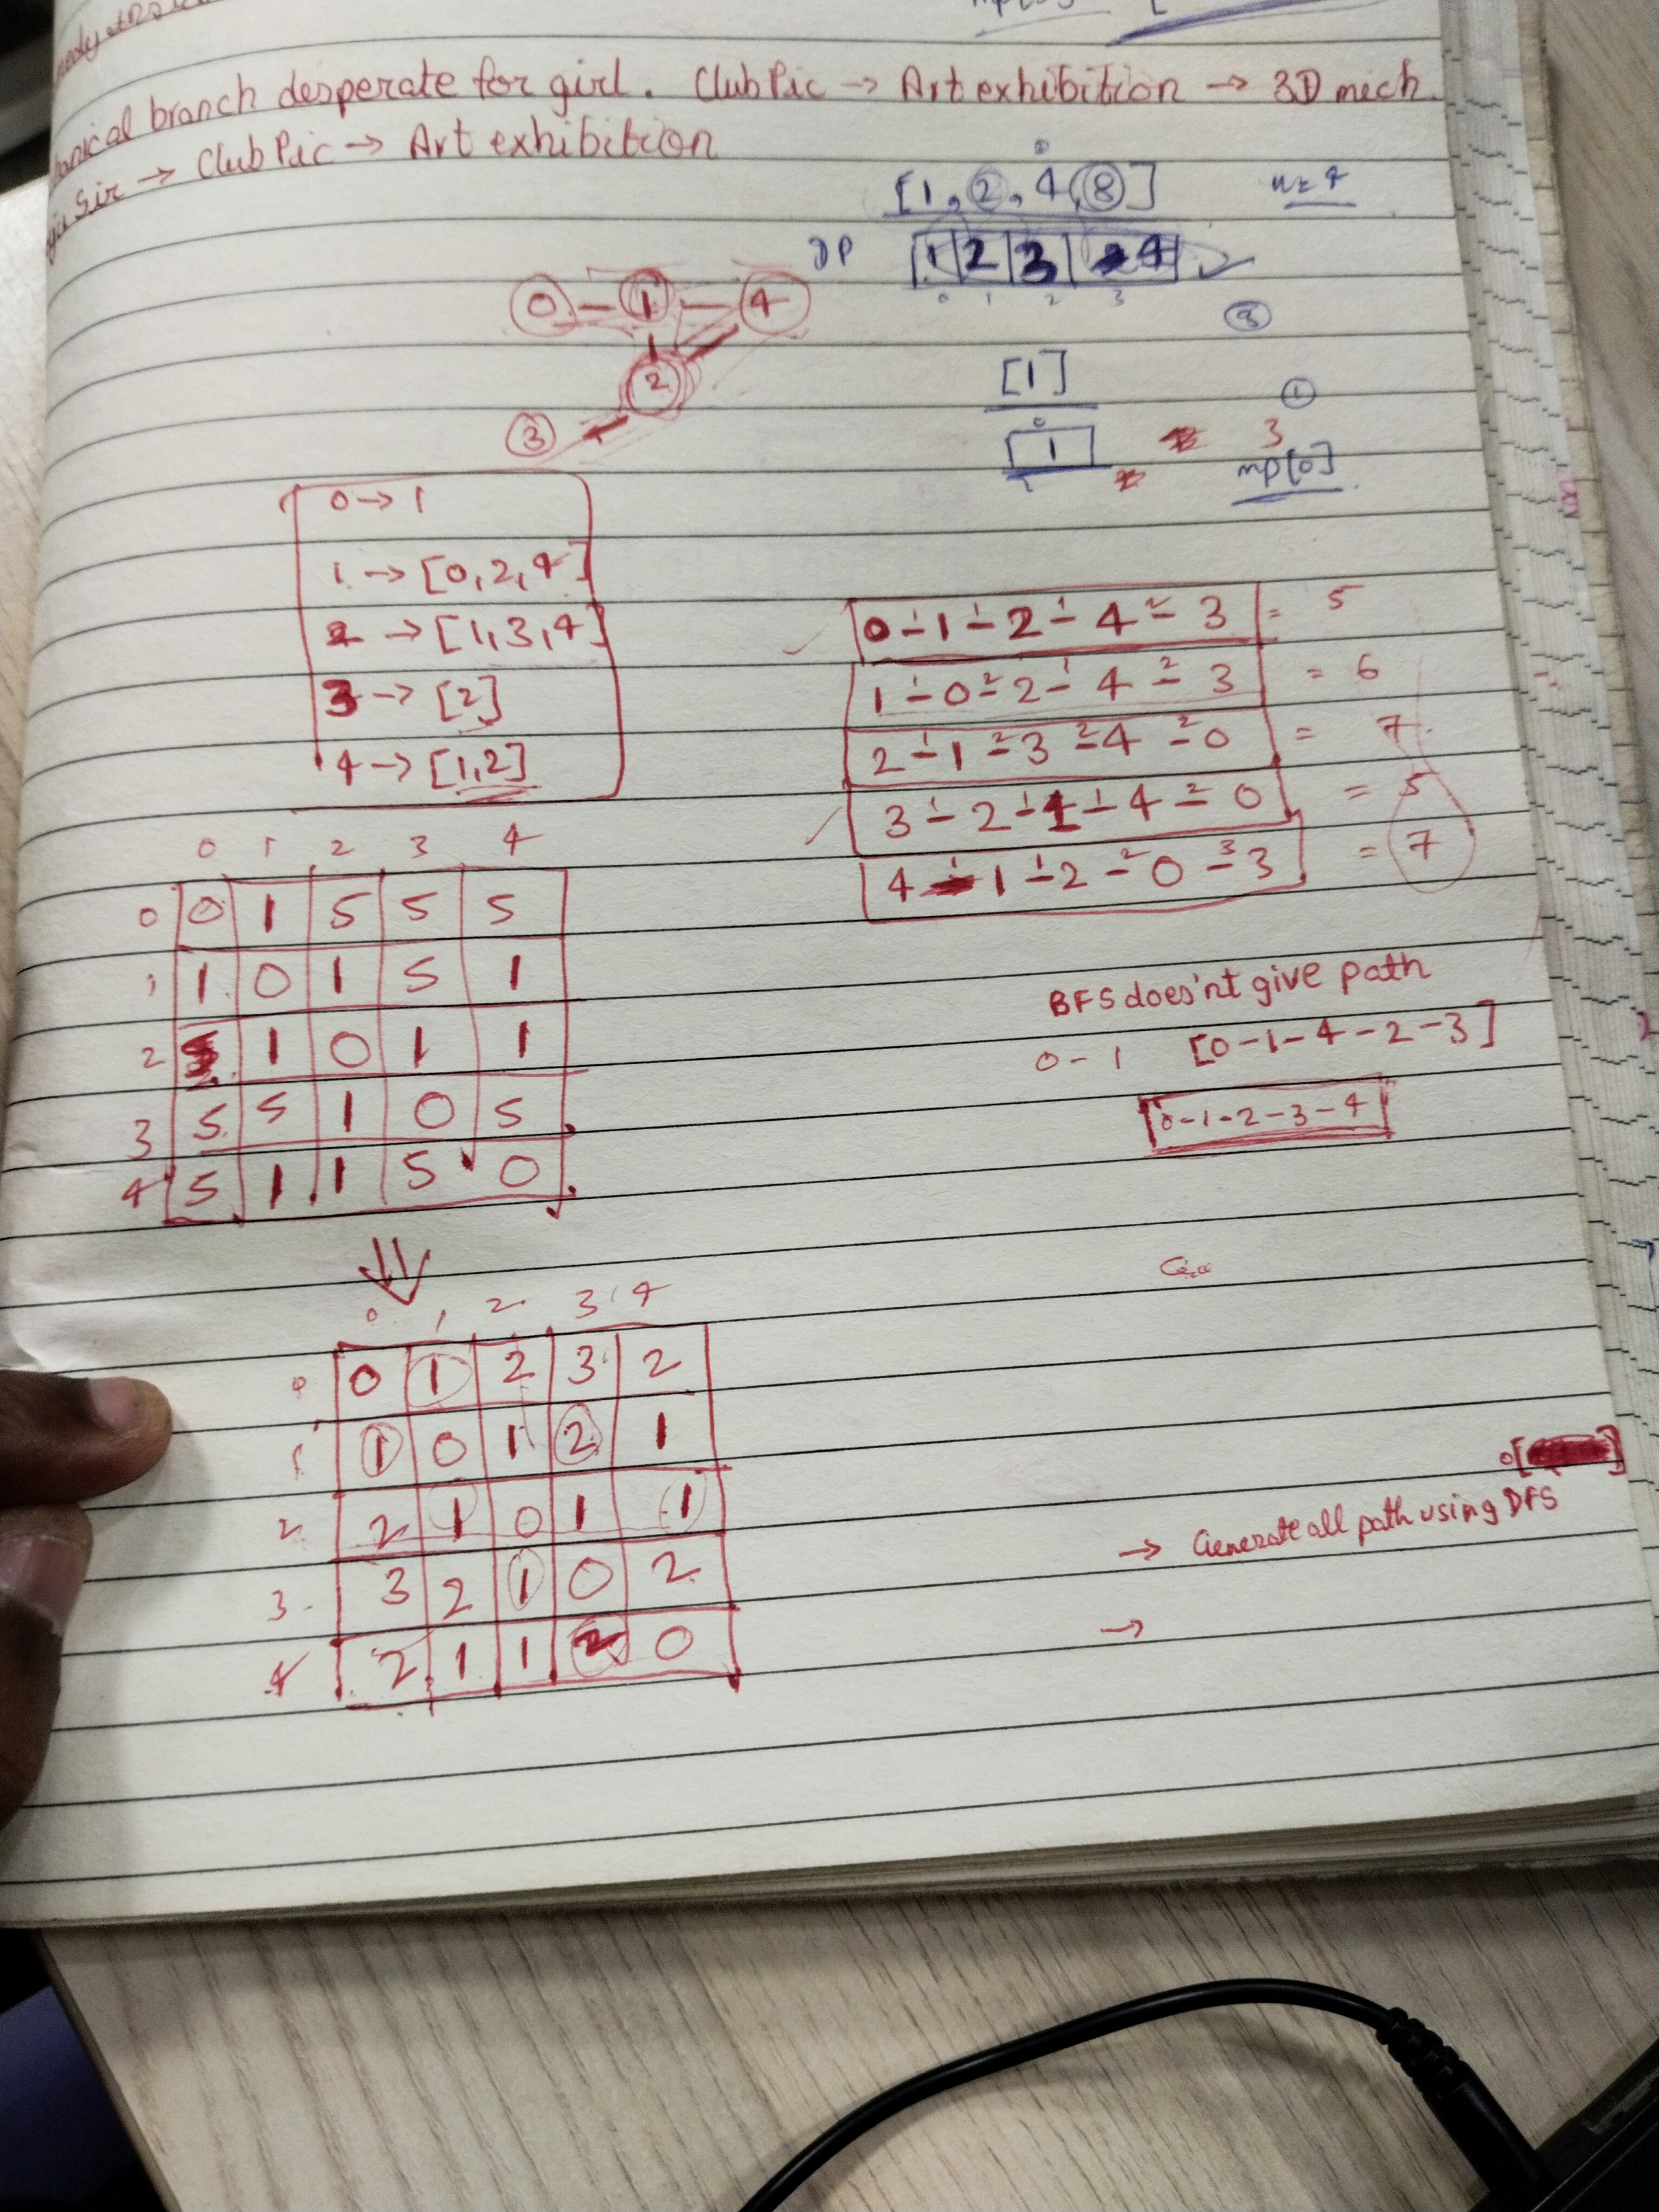 mp[0] [
branch desperate for girl. Club Pic → Art exhibition → 3D mech.
Sir → Club Pic → Art exhibition
[1, 2, 4, 8] n=4
DP 1 2 3 4
0 1 2 3
0 - 1 - 4
2
3
8
[1]
0
1
1
3
mp[0]
0 → 1
1 → [0, 2, 4]
2 → [1, 3, 4]
3 → [2]
4 → [1, 2]
0 -1 1 -1 2 -1 4 -2 3 = 5
1 -1 0 -2 2 -1 4 -2 3 = 6
2 -1 1 -2 3 -2 4 -2 0 = 7
3 -1 2 -1 1 -1 4 -2 0 = 5
4 -1 1 -1 2 -2 0 -3 3 = 7
0 1 2 3 4
0 0 1 5 5 5
1 1 0 1 5 1
2 5 1 0 1 1
3 5 5 1 0 5
4 5 1 1 5 0
BFS does'nt give path
0 - 1 [0-1-4-2-3]
0-1-2-3-4
0 1 2 3 4
0 0 1 2 3 2
1 1 0 1 2 1
2 2 1 0 1 1
3 3 2 1 0 2
4 2 1 1 2 0
0[ ]
→ Generate all path using DFS
→